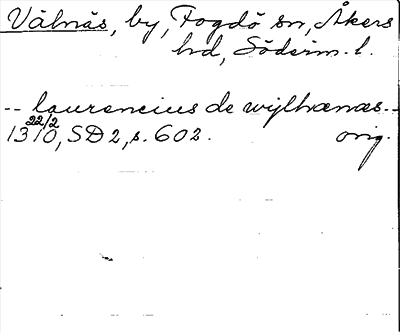 Välnäs, by, Fogdö sn, Åkers
hd, Söderm. l.
-- laurencius de wylhænæs --
22/2
1310, SD 2, s. 602. orig.